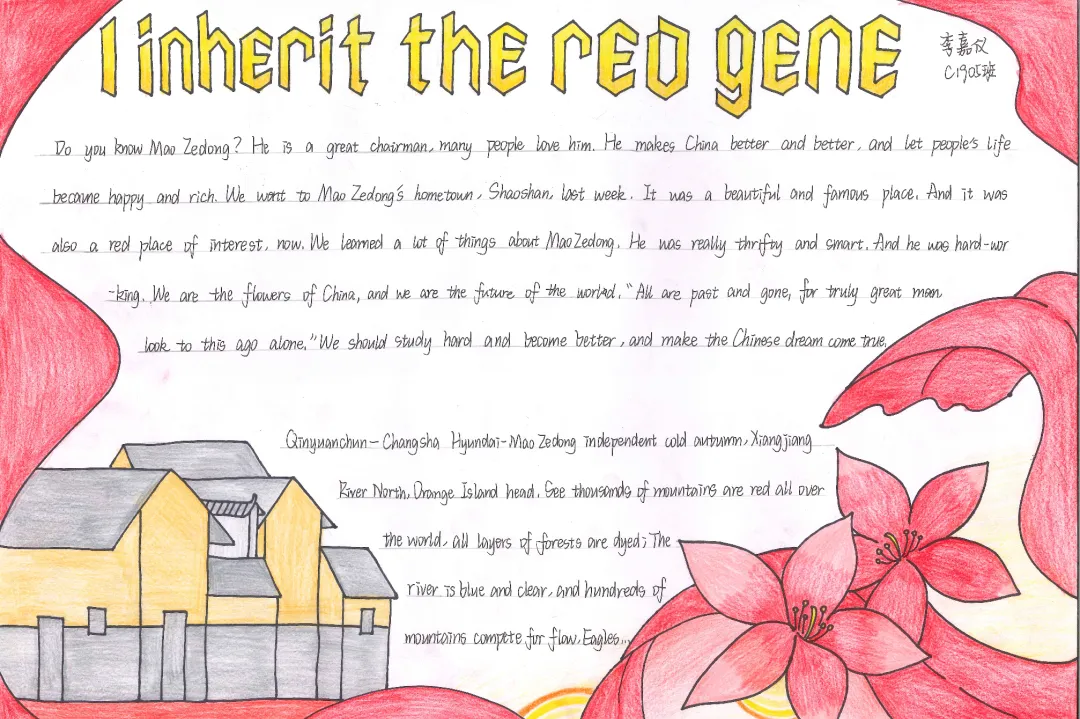 I inherit the red gene
李嘉仪
C1905班
Do you know Mao Zedong? He is a great chairman, many people love him. He makes China better and better, and let people's life
became happy and rich. We want to Mao Zedong's hometown, Shaoshan, last week. It was a beautiful and famous place. And it was
also a red place of interest, now. We learned a lot of things about Mao Zedong. He was really thrifty and smart. And he was hard-wor
-king. We are the flowers of China, and we are the future of the world. "All are past and gone, for truly great men,
look to this ago alone." We should study hard and become better, and make the Chinese dream come true.
Qinyuanchun-Changsha Hyundai-Mao Zedong independent cold autumn, Xiangjiang
River North, Orange Island head. See thousands of mountains are red all over
the world, all layers of forests are dyed; The
river is blue and clear, and hundreds of
mountains compete for flow, Eagles...